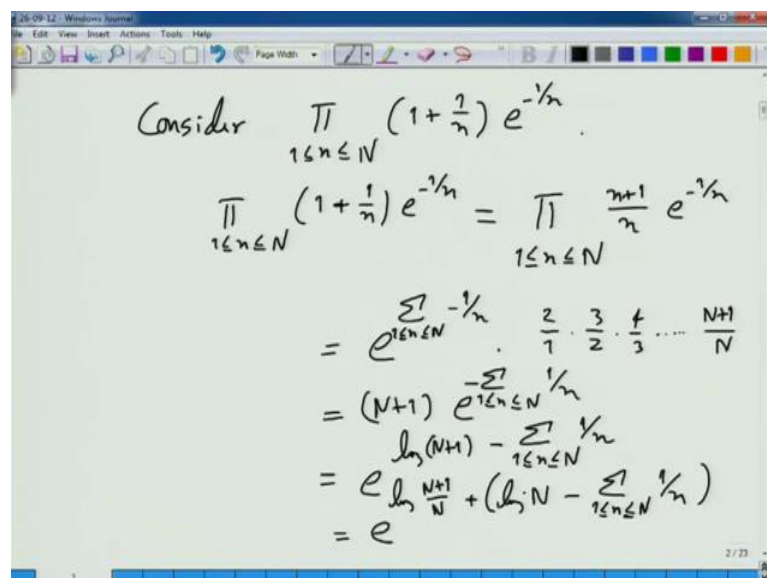 26-09-12 - Windows Journal
File Edit View Insert Actions Tools Help
Page Width B I
Consider ∏_{1≤n≤N} (1 + 1/n) e^{-1/n} .
∏_{1≤n≤N} (1 + 1/n) e^{-1/n} = ∏_{1≤n≤N} (n+1)/n e^{-1/n}
= e^{∑_{1≤n≤N} -1/n} . 2/1 · 3/2 · 4/3 ..... (N+1)/N
= (N+1) e^{-∑_{1≤n≤N} 1/n}
= e^{log(N+1) - ∑_{1≤n≤N} 1/n}
= e^{log (N+1)/N + (log N - ∑_{1≤n≤N} 1/n)}
2 / 23